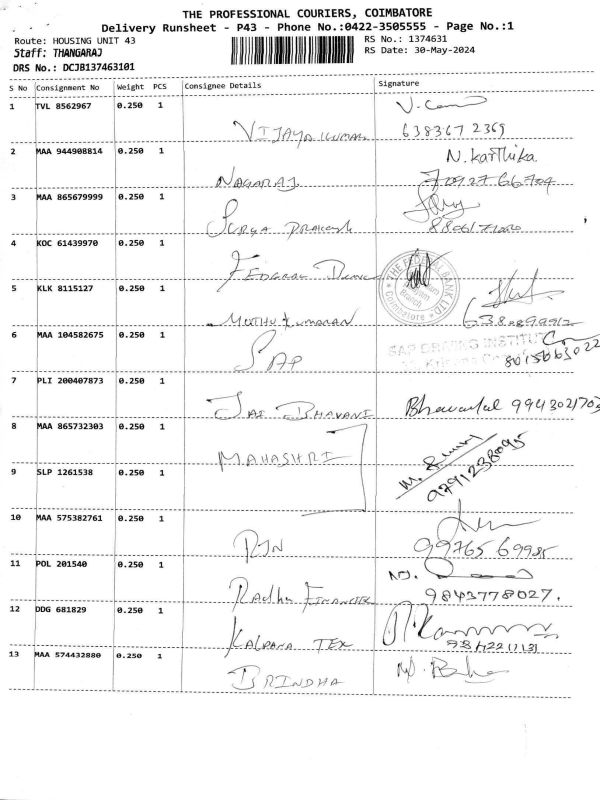 THE PROFESSIONAL COURIERS, COIMBATORE
Delivery Runsheet - P43 - Phone No.:0422-3505555 - Page No.:1
Route: HOUSING UNIT 43
RS No.: 1374631
Staff: THANGARAJ
RS Date: 30-May-2024
DRS No.: DCJB137463101
S No Consignment No Weight PCS Consignee Details Signature
1 TVL 8562967 0.250 1
VIJAYA KUMAR 638367 2369
2 MAA 944908814 0.250 1 N. Karthika
NAGARAJ
3 MAA 865679999 0.250 1
SURYA PRAKASH
4 KOC 61439970 0.250 1
FEDERAL
THE FEDERAL BANK LTD
Branch
Coimbatore
5 KLK 8115127 0.250 1
MUTHU KUMARAN
6 MAA 104582675 0.250 1
SAP SAP DRIVING INSTITUTE
8015663022
7 PLI 200407873 0.250 1
JAI BHAVANI 9943021703
8 MAA 865732303 0.250 1
MAHASHRI
9791238095
9 SLP 1261538 0.250 1
10 MAA 575382761 0.250 1
RJN 99765 69985
11 POL 201540 0.250 1
Radhu FINANCIER 9843778027.
12 DDG 681829 0.250 1
KALPANA TEX
13 MAA 574432880 0.250 1
BRINDHA